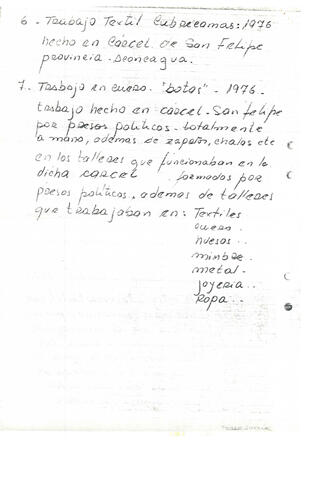 6 - Trabajo Textil Cubrecamas: 1976
hecho en Cárcel de San Felipe
provincia - Aconcagua.
7. Trabajo en cuero. "botas" - 1976 -
trabajo hecho en carcel - San Felipe
por presos políticos - totalmente
a mano, ademas de zapatos, chalas etc
en los talleres que funcionaban en la
dicha carcel formados por
presos políticos, ademas de talleres
que trabajaban en: Textiles
cuero.
huesos..
mimbre.
metal.
joyería..
Ropa..